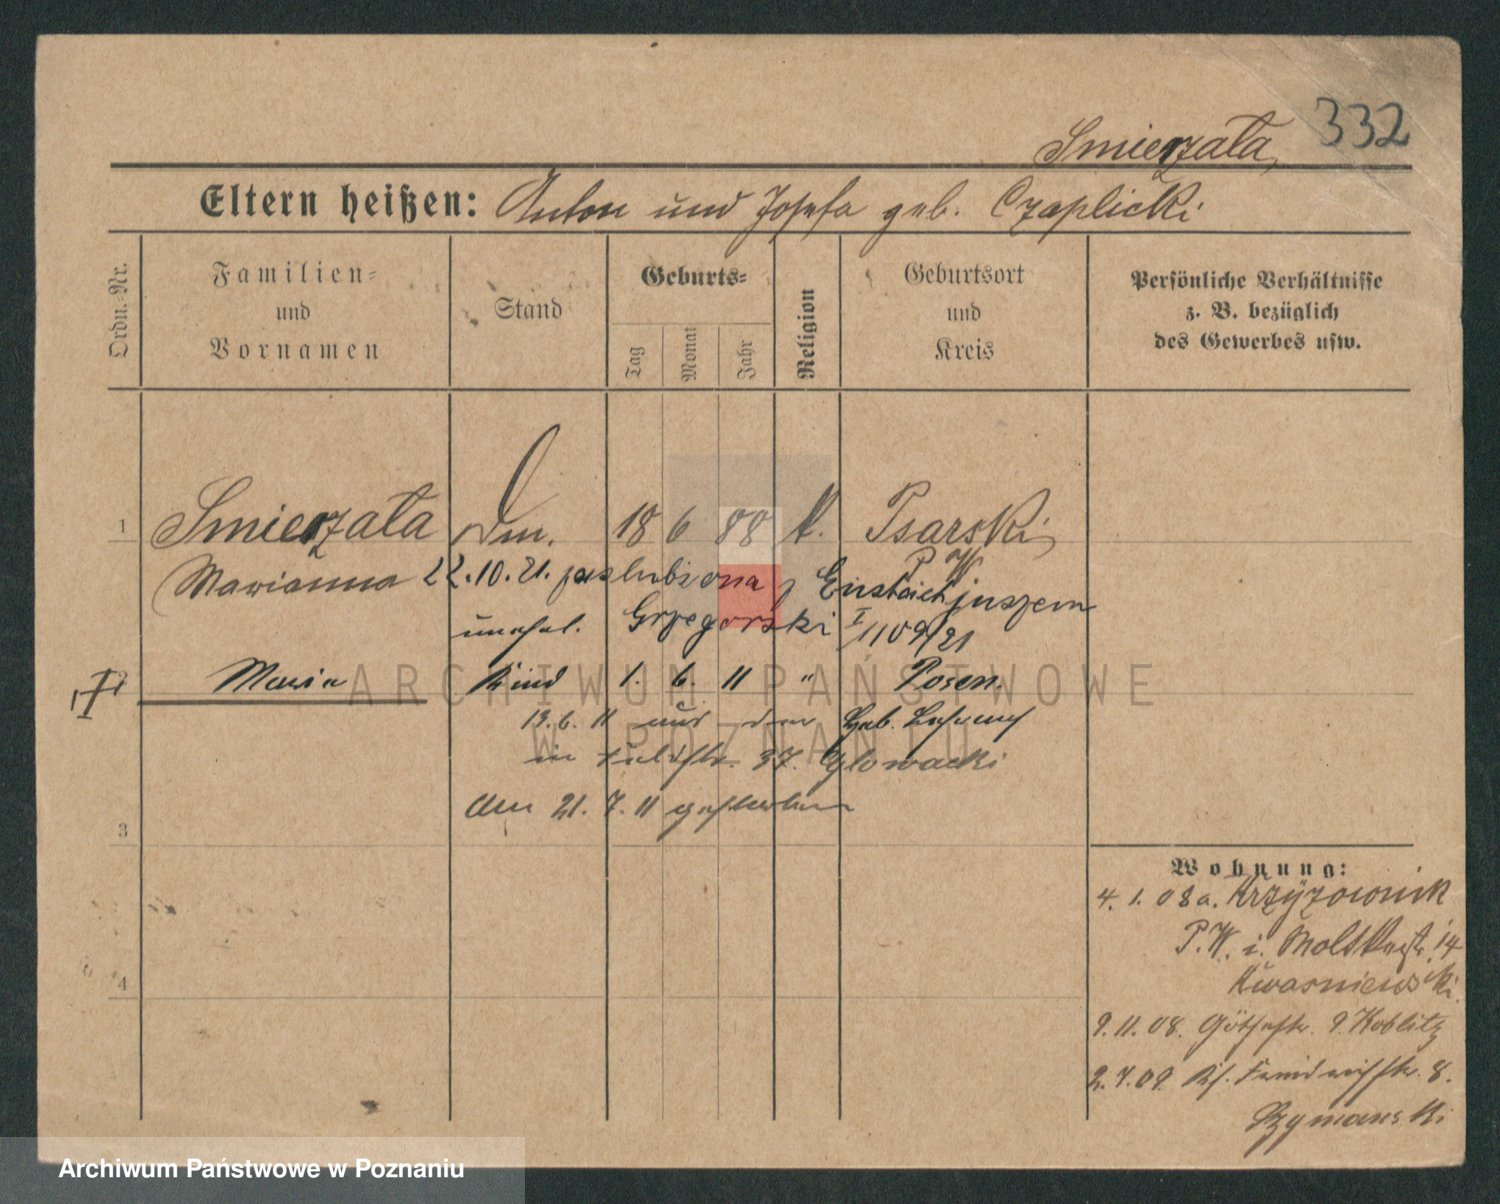 332
Smierzala
Eltern heißen: Anton und Josefa geb. Czaplicki
Ordn.=Nr.
Familien=
und
Vornamen
Stand
Geburts=
Tag
Monat
Jahr
Religion
Geburtsort
und
Kreis
Persönliche Verhältnisse
z. B. bezüglich
des Gewerbes usw.
1 Smierzała 18 6 88 k. Psarski
P. W.
Marianna 22.10.21. zaslubiona z Eustachjuszem
unehel. Grzegorski I/1109/21
2 Maria Kind 1. 6. 11 " Posen.
13.6.11 aus der
in Feldstr. 37. Glowacki
Am 21.7.11 gestorben
3
4
Wohnung:
4. 1. 08 a. Krzyzownik
P. W. i. Moltkestr. 14
Kwasniewski.
9.11.08. Göthestr. 9. Koblitz
2.7.09. Friedrichstr. 8.
Szymanski
ARCHIWUM PAŃSTWOWE
W POZNANIU
Archiwum Państwowe w Poznaniu